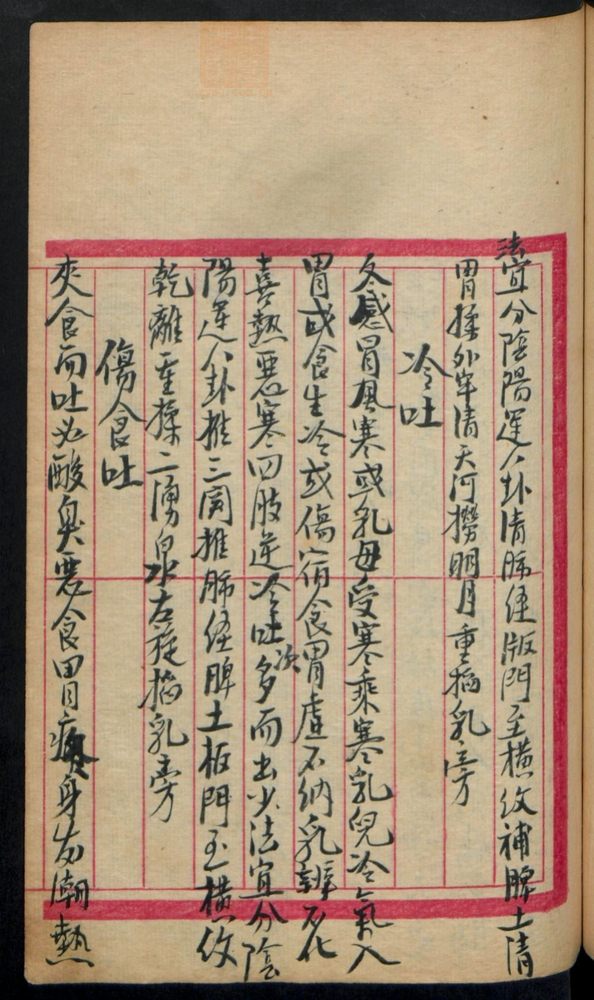 法宜分陰陽運八卦清肺経版門至橫紋補脾土清
胃揉外牢清天河撈明月重掐乳旁
冷吐
冬感冒風寒或乳母受寒乘寒乳兒冷氣入
胃或食生冷或傷宿食胃虛不納乳難不化
喜熱惡寒四肢逆冷吐次多而出少法宜分陰
陽運八卦推三関推肺経脾土板門至橫紋
乾離重揉二湧泉左旋掐乳旁
傷食吐
夾食而吐必酸臭惡食胃疼身發潮熱